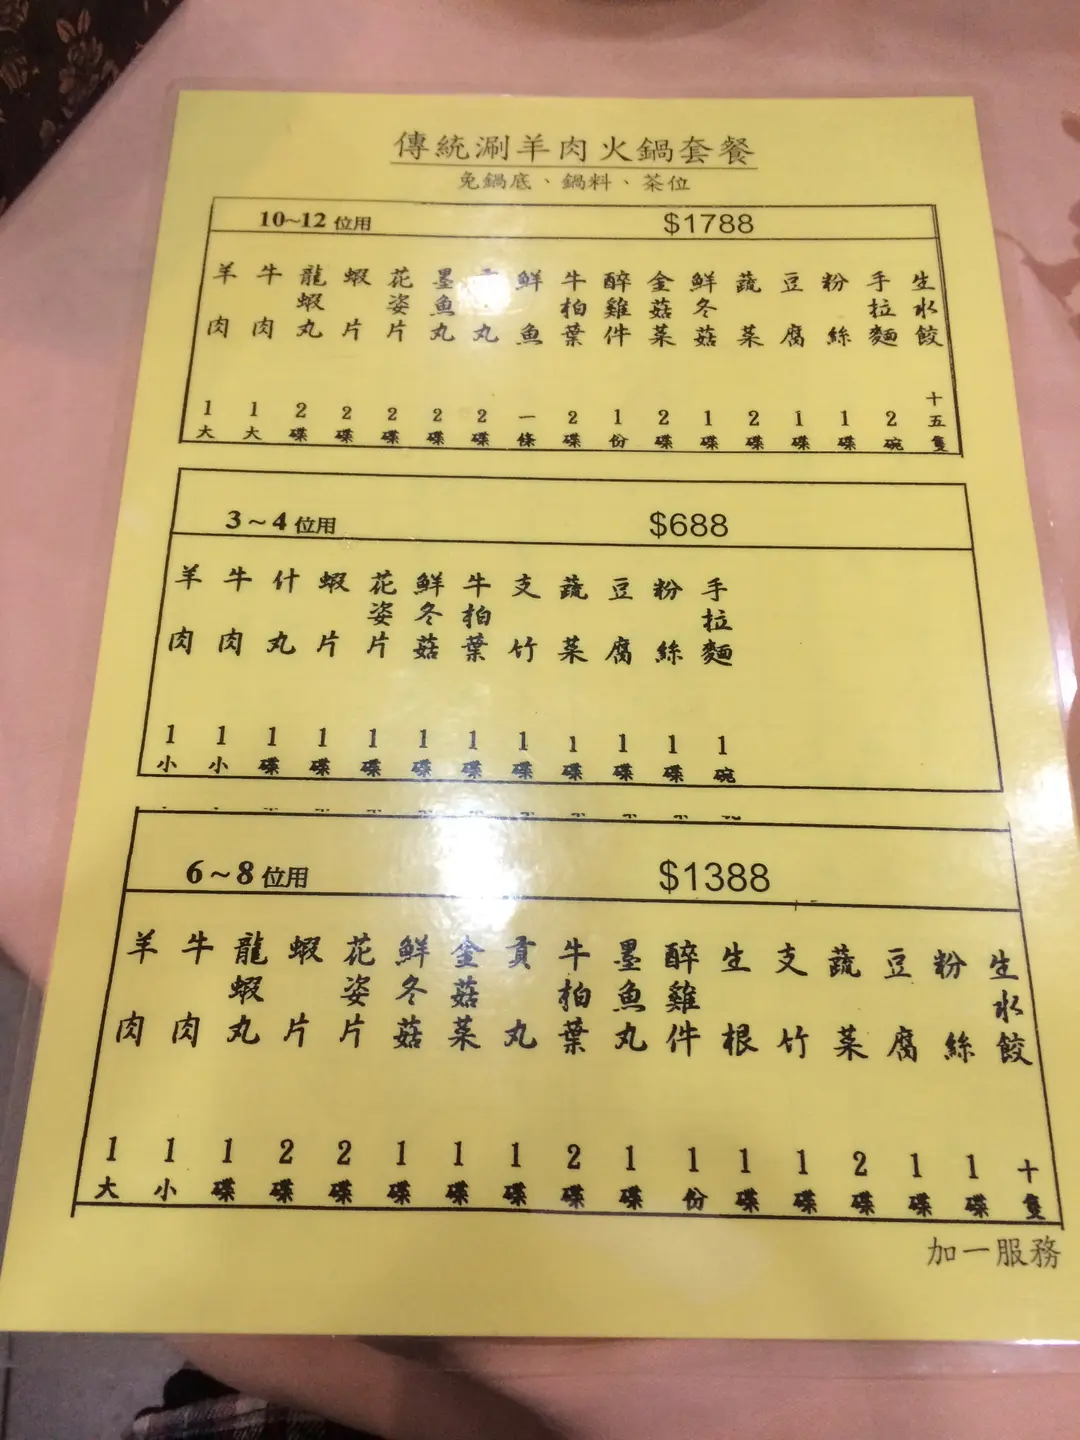 傳統涮羊肉火鍋套餐
免鍋底、鍋料、茶位
10~12 位用 $1788
羊肉 1大
牛肉 1大
龍蝦丸 2碟
蝦片 2碟
花姿片 2碟
墨魚丸 2碟
丸 2碟
鮮魚 一條
牛柏葉 2碟
醉雞件 1份
金菇菜 2碟
鮮冬菇 1碟
蔬菜 2碟
豆腐 1碟
粉絲 1碟
手拉麵 2碗
生水餃 十五隻
3~4 位用 $688
羊肉 1小
牛肉 1小
什丸 1碟
蝦片 1碟
花姿片 1碟
鮮冬菇 1碟
牛柏葉 1碟
支竹 1碟
蔬菜 1碟
豆腐 1碟
粉絲 1碟
手拉麵 1碗
6~8 位用 $1388
羊肉 1大
牛肉 1小
龍蝦丸 1碟
蝦片 2碟
花姿片 2碟
鮮冬菇 1碟
金菇菜 1碟
貢丸 1碟
牛柏葉 2碟
墨魚丸 1碟
醉雞件 1份
生根 1碟
支竹 1碟
蔬菜 2碟
豆腐 1碟
粉絲 1碟
生水餃 十隻
加一服務